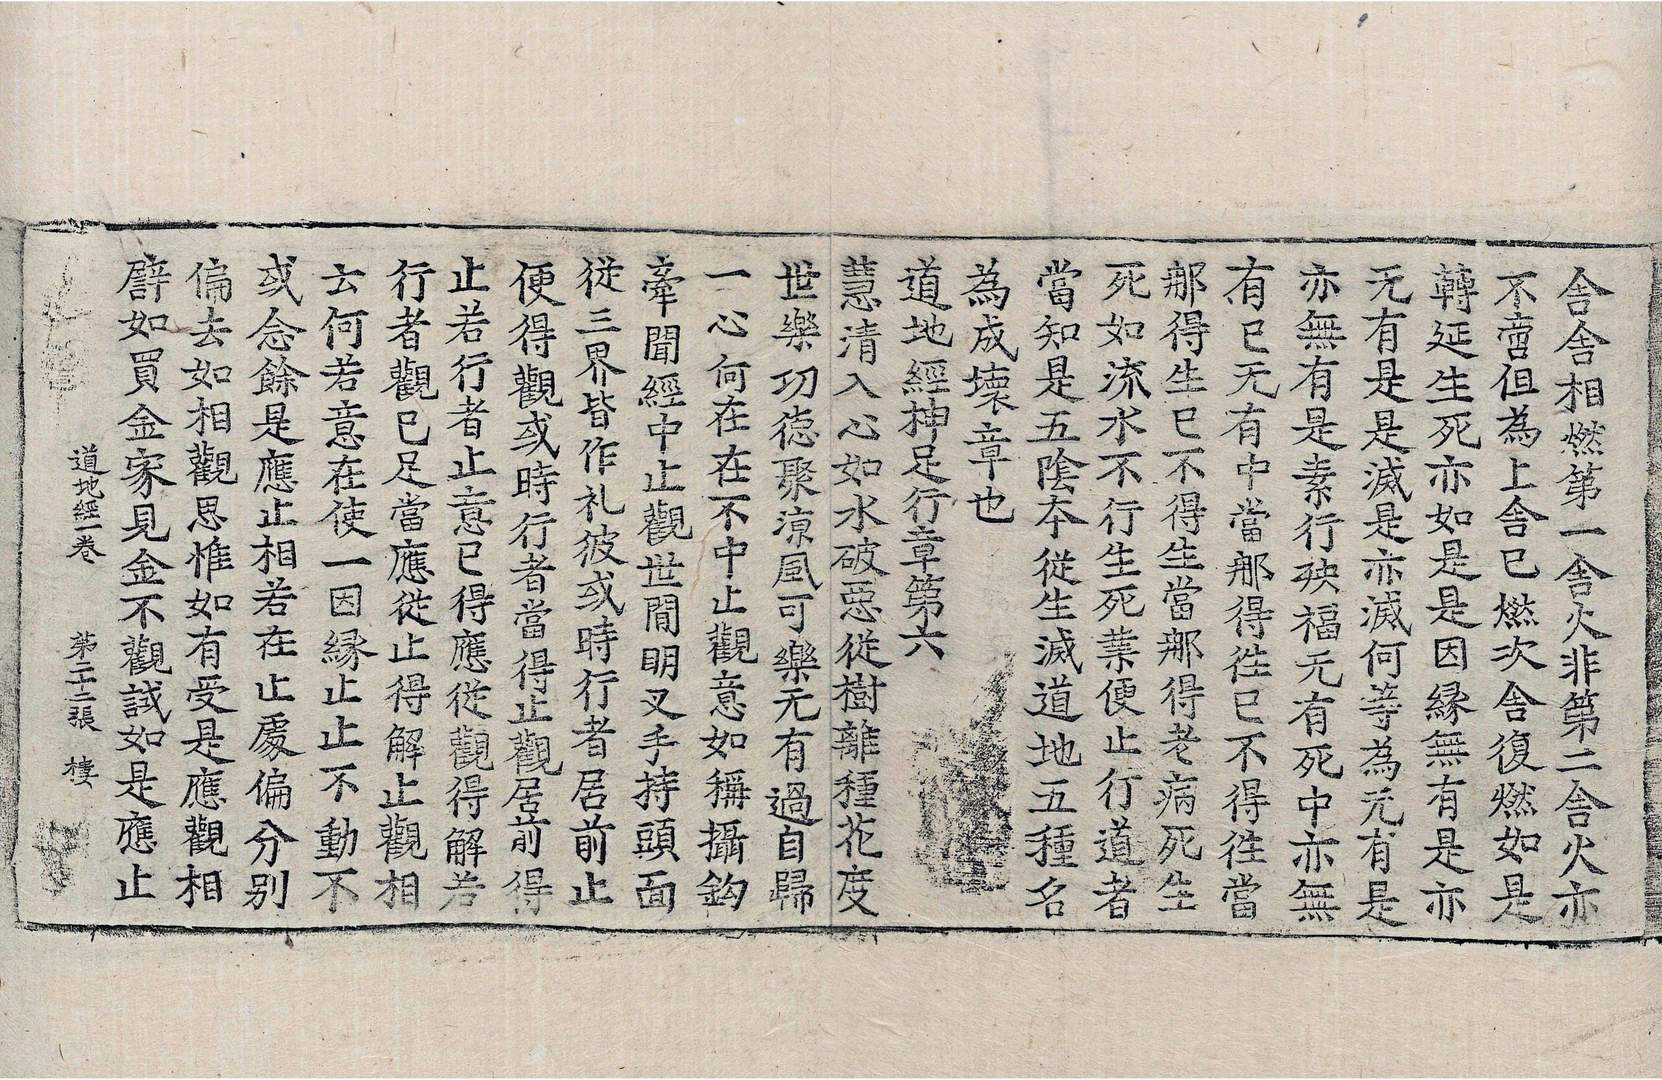 舎舎相燃第一舎火非第二舎火亦
不啻但為上舎已燃次舎復燃如是
轉延生死亦如是是因縁無有是亦
无有是是滅是亦滅何等為无有是
亦無有是素行殃福无有死中亦無
有已无有中當那得徃已不得徃當
那得生已不得生當那得老病死生
死如流水不行生死業便止行道者
當知是五陰夲從生滅道地五種名
為成壞章也
道地經神足行章第六
慧清入心如水破惡從樹離種花度
世樂功徳聚涼風可樂无有過自歸
一心何在在不中止觀意如稱攝鈎
牽聞經中止觀世間明叉手持頭面
從三界皆作礼彼或時行者居前止
便得觀或時行者當得止觀居前得
止若行者止意已得應從觀得解若
行者觀已足當應從止得解止觀相
云何若意在使一因縁止止不動不
或念餘是應止相若在止處偏分別
偏去如相觀思惟如有受是應觀相
辟如買金家見金不觀試如是應止
道地經一卷 第二十二張 樓